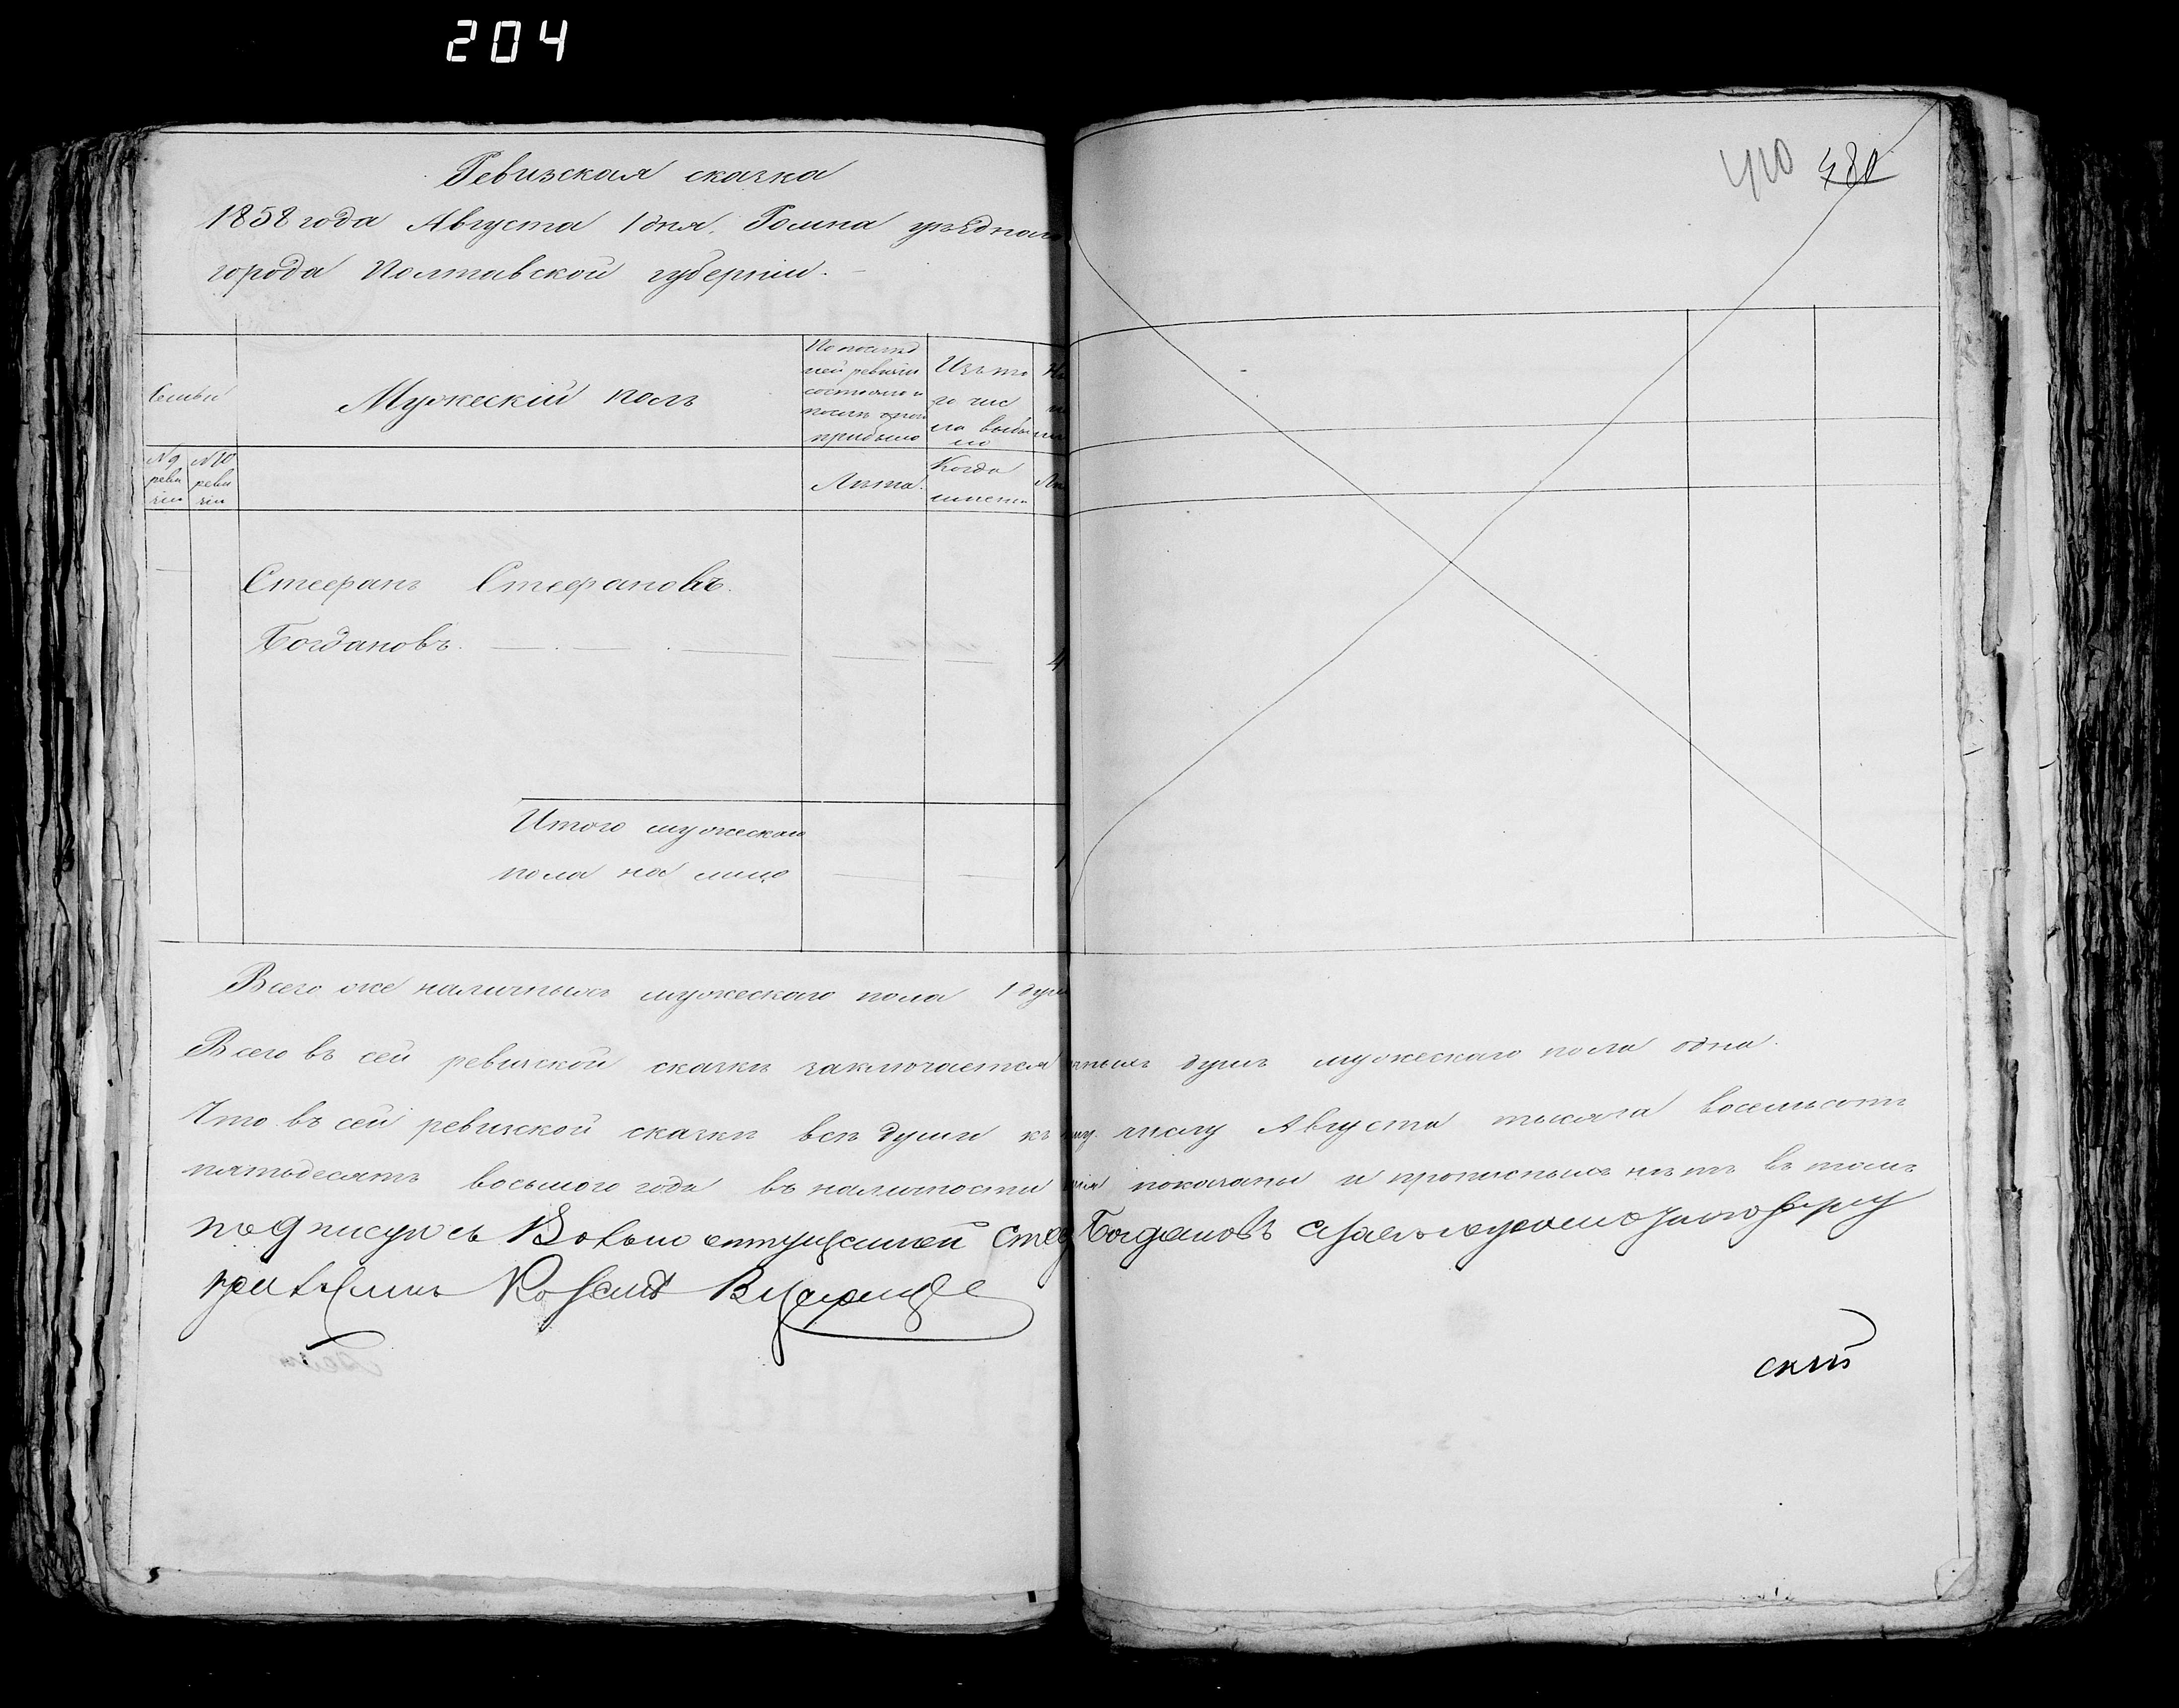 204
Ревизская сказка
1858 года Августа 1 дня, Ромна уѣзднаго
города Полтавской губерніи.
410 480
Семьи
Мужескій полъ
По послѣд
ней ревизіи
состояло и
послѣ того
прибыло
Изъ то
го чис
ла выбы
ло
№ 9 реви зіи
№ 10 реви зіи
Лѣта.
Когда
именно
Стефанъ Стефановъ.
Богдановъ. 4
Итого мужескаго
пола на лицо 1
Всего же наличныхъ мужескаго пола 1 душ
Всего въ сей ревизской сказкѣ заключается душъ мужескаго пола одна.
Что въ сей ревизской сказкѣ всѣ души къ числу Августа тысяча восемьсотъ
пятьдесятъ восьмого года въ наличности показаны и прописныхъ нѣтъ въ томъ
подписуюсь Вольно отпущенной Стеф Богдановъ
скій